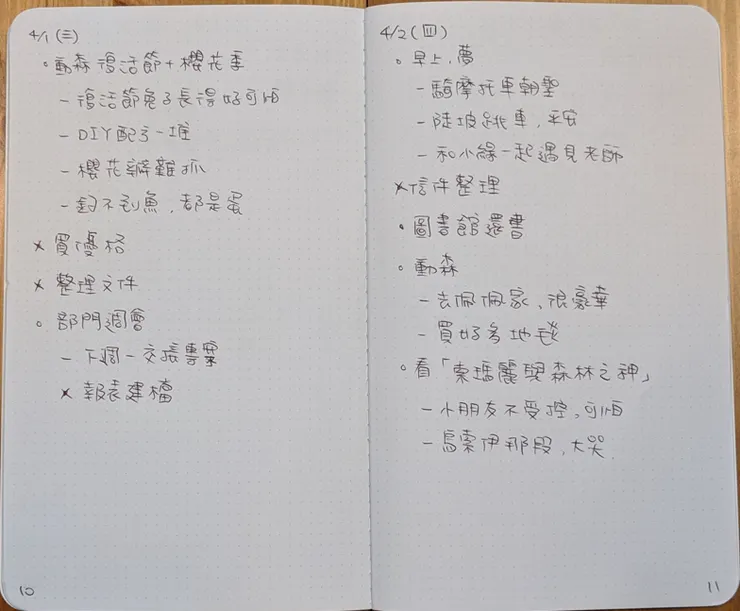 4/1(三)
。動森復活節+櫻花季
-復活節兔子長得好可怕
-DIY配方一堆
-櫻花瓣難抓
-釣不到魚,都是蛋
×買優格
×整理文件
。部門週會
-下週一交接專案
×報表建檔
10
4/2(四)
。早上,夢
-騎摩托車朝聖
-陡坡跳車,平安
-和小緣一起遇見老師
×信件整理
•圖書館還書
。動森
-去佩佩家、很豪華
-買好多地毯
。看「索瑪麗與森林之神」
-小朋友不受控,可怕
-烏索伊那段,大哭
11